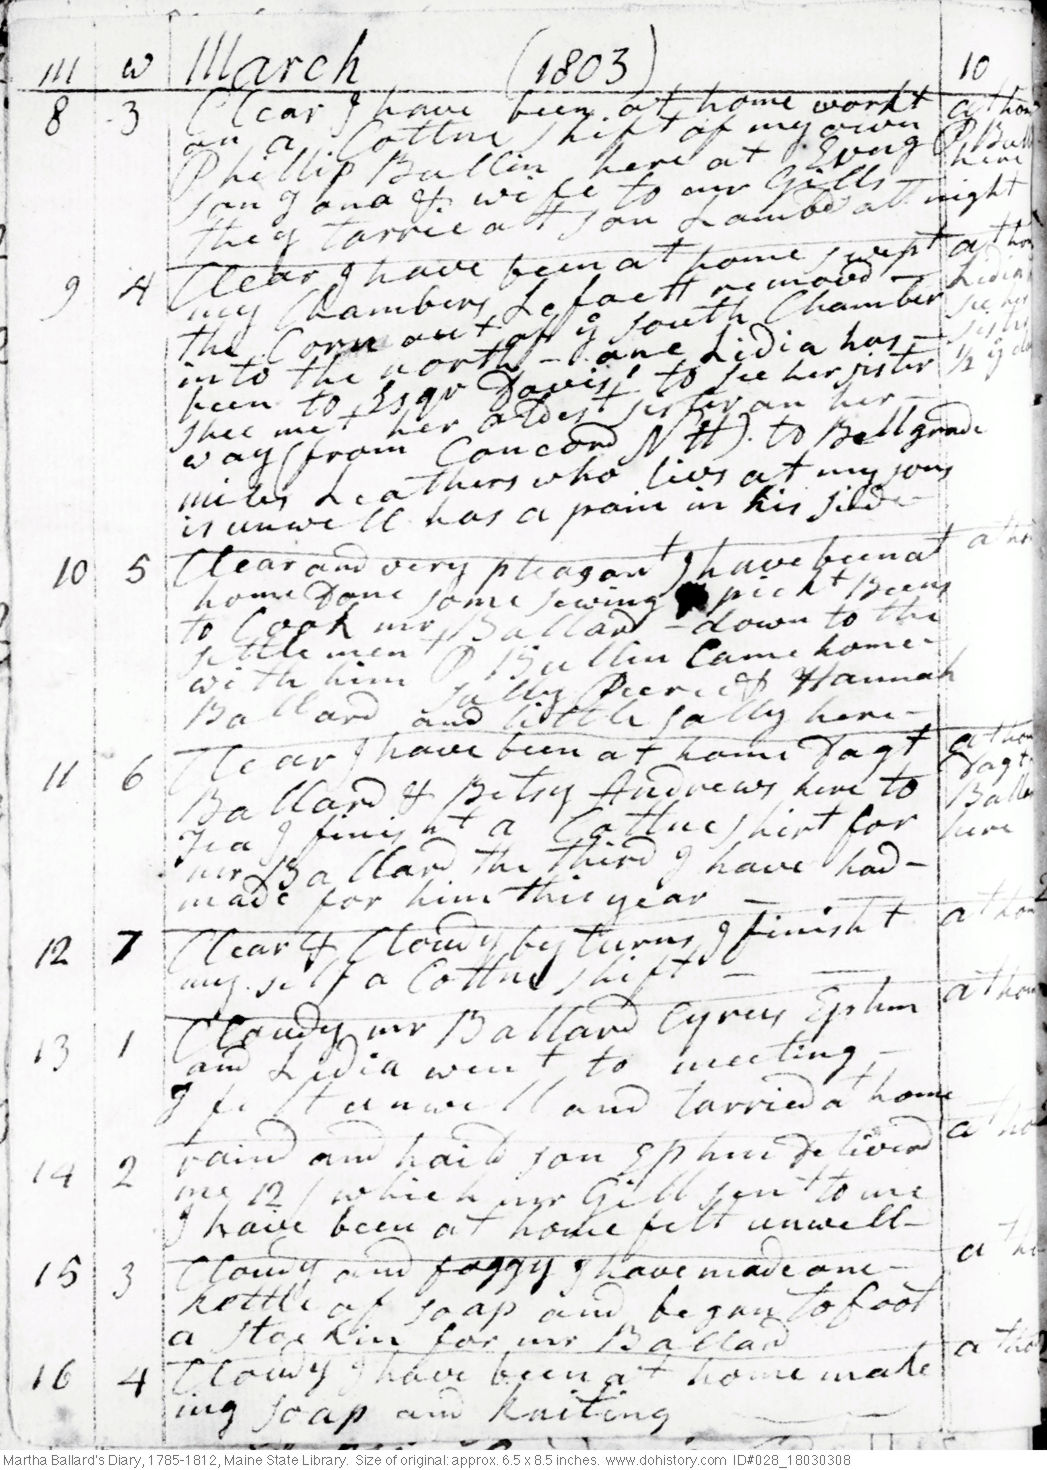 m w March (1803) 10
8 3 Clear I have been at home workt at hom
on a Cottne shift of my own P Bull
Phillip Bullin here at Evng here
son Jona & wife to mr Gills
they tarrie att son Lambd at night
9 4 Clear I have been at home swept at hom
my Chambers Lafaett remoovd Lidia
the Corn out off ye south Chamber see her
into the north - ane Lidia has sister
been to Esqr Davis' to see her sister ½ ye da
shee met her oldest sister on her
way (from Concord N H). to Bellgrade
miles Leathers who livs at my sons
is unwell has a pain in his side
10 5 Clear and very pleasant I have been at at ho
home Done some sewing pickt Beens
to Cook mr Ballard - down to the
settlement P Bullin Came home
with him Sally Peirce & Hannah
Ballard and little sally here
11 6 Clear I have been at home Dagt at hom
Ballard & Betsy Andrews here to Dagt
Tea I finisht a Cottne shirt for Balla
mr Ballard the third I have had here
made for him this year
12 7 Clear & Cloudy by turns I finisht at hom
my self a Cottne shift
13 1 Cloudy mr Ballard Cyrus Ephm at hom
and Lidia went to meeting
I felt unwell and tarried at home
14 2 raind and haild son Ephm deliverd at ho
me 12/ which mr Gill sent to me
I have been at home felt unwell
15 3 Cloudy and foggy I have made one at ho
kettle of soap and began to foot
a stockin for mr Ballard
16 4 Cloudy I have been at home make at hom
ing soap and kniting
Martha Ballard's Diary, 1785-1812, Maine State Library. Size of original: approx. 6.5 x 8.5 inches. www.dohistory.com ID#028_18030308